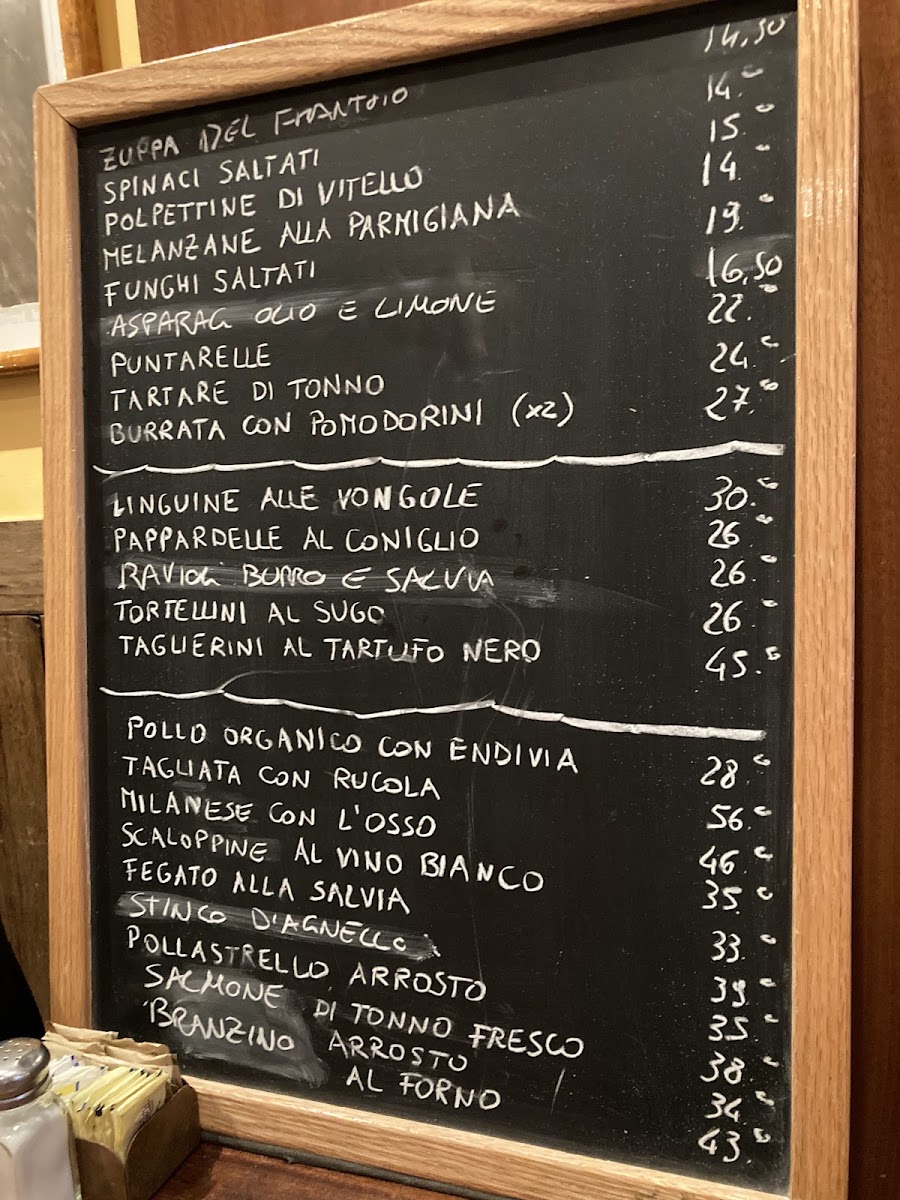 ZUPPA DEL FRANTOIO 14,50
SPINACI SALTATI 14.-
POLPETTINE DI VITELLO 15.-
MELANZANE ALLA PARMIGIANA 14.-
FUNGHI SALTATI 19.-
ASPARAGI OLIO E LIMONE 16,50
PUNTARELLE 22.-
TARTARE DI TONNO 24.-
BURRATA CON POMODORINI (x2) 27.-
LINGUINE ALLE VONGOLE 30.-
PAPPARDELLE AL CONIGLIO 26.-
RAVIOLI BURRO E SALVIA 26.-
TORTELLINI AL SUGO 26.-
TAGLIERINI AL TARTUFO NERO 45.-
POLLO ORGANICO CON ENDIVIA 28.-
TAGLIATA CON RUCOLA 56.-
MILANESE CON L'OSSO 46.-
SCALOPPINE AL VINO BIANCO 35.-
FEGATO ALLA SALVIA 33.-
STINCO D'AGNELLO 39.-
POLLASTRELLO ARROSTO 35.-
SALMONE DI TONNO FRESCO 38.-
BRANZINO ARROSTO 34.-
AL FORNO 43.-